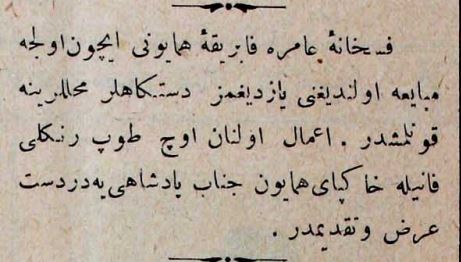 فسخانهٔ عامره فابريقهٔ همايونى ايچون اولجه
مبايعه اولنديغنى يازديغمز دستكاهلر محللرينه
قونلمشدر . اعمال اولنان اوچ طوپ رنكلى
فانيله خاكپاى همايون جناب پادشاهى يه دردست
عرض و تقديمدر .